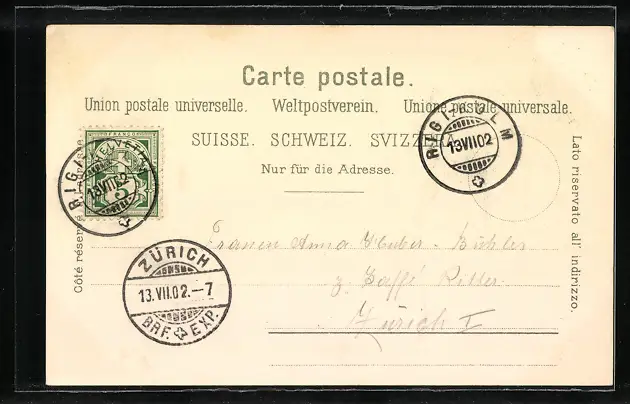 Carte postale.
Union postale universelle. Weltpostverein. Unione postale universale.
SUISSE. SCHWEIZ. SVIZZERA.
Nur für die Adresse.
Côté réservé
Lato riservato all' indirizzo.
FRANCO
HELVETIA
5
RIGI
13 VII 02
RIGI-KULM
13 VII 02
ZÜRICH
13.VII.02.-7
BRF. EXP.
Anna Huber-
z. Caffé Ritter
Zürich I